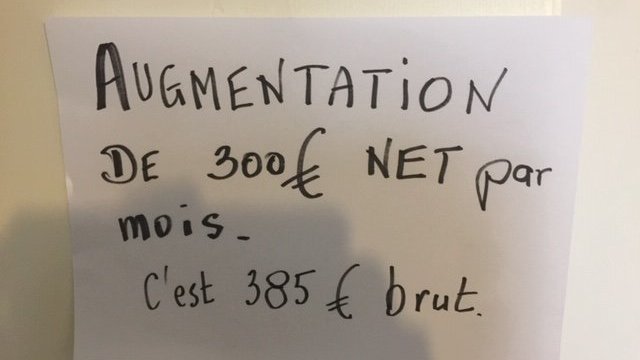 AUGMENTATiON
DE 300€ NET par
mois.
C'est 385 € brut.